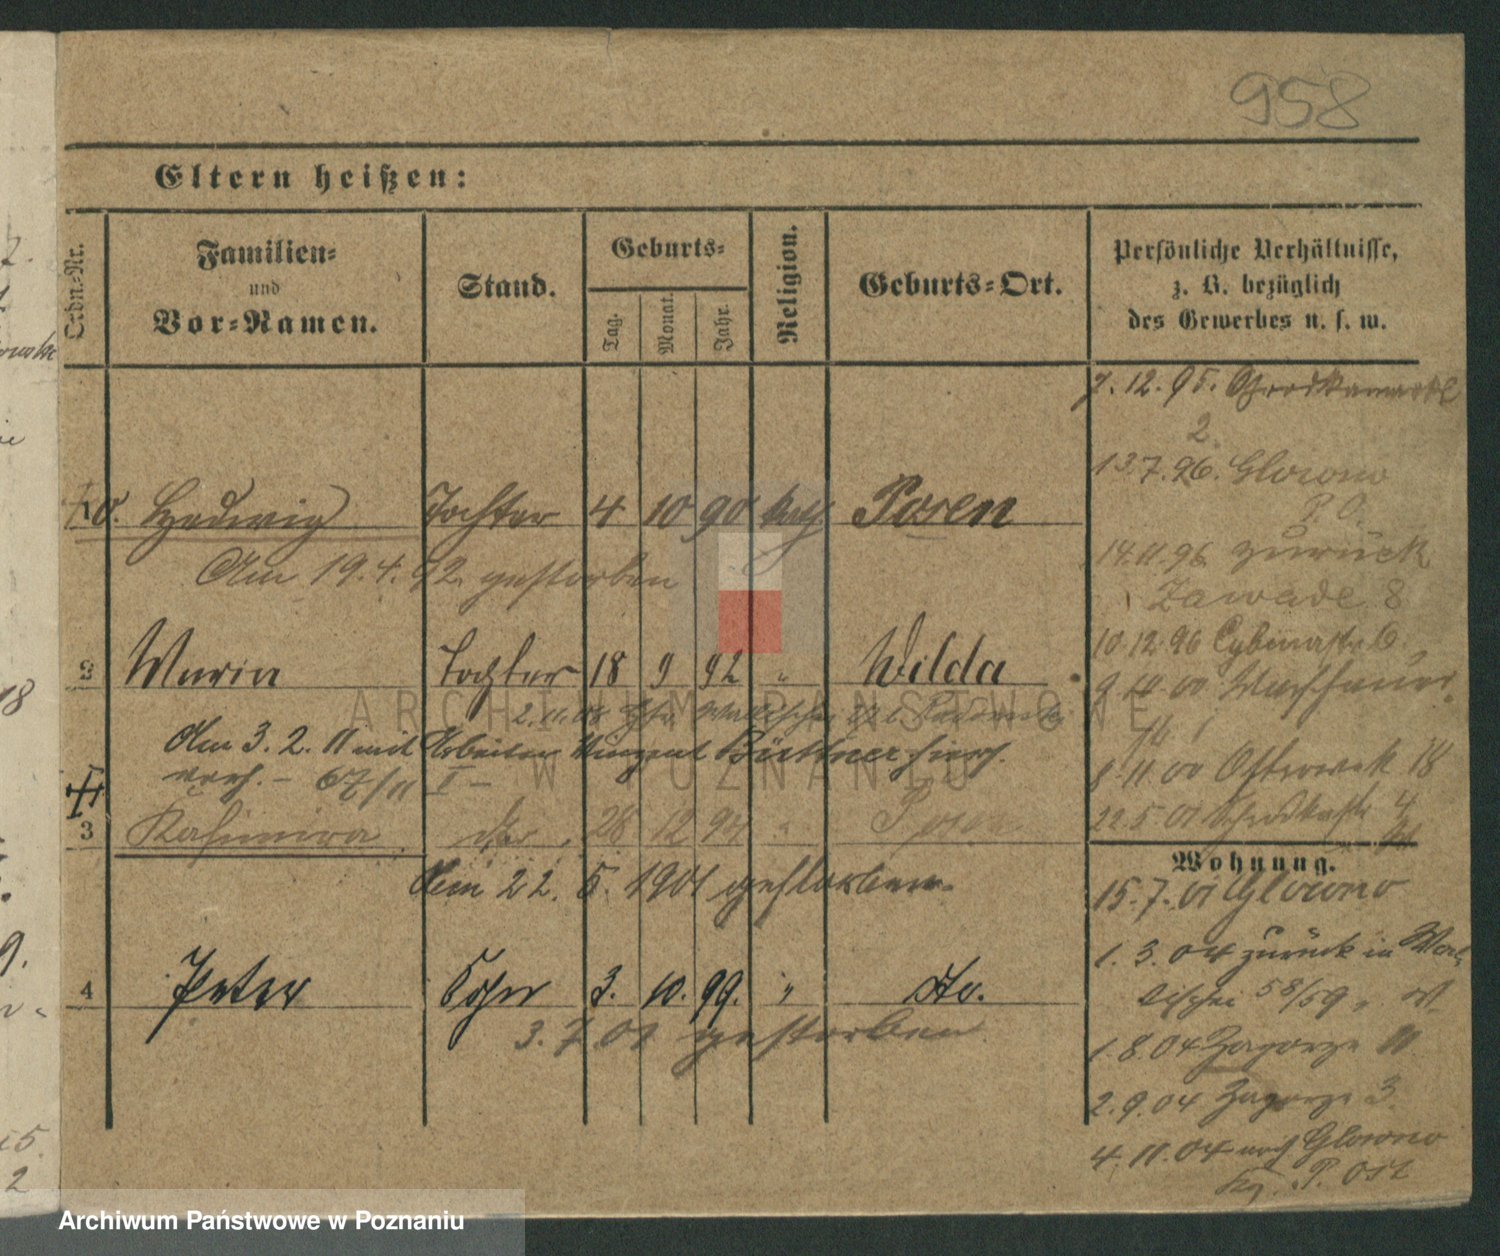 958
Eltern heißen:
Ordn.-Nr.
Familien-
und
Vor-Namen.
Stand.
Geburts-
Tag.
Monat.
Jahr.
Religion.
Geburts-Ort.
Persönliche Verhältnisse,
z. B. bezüglich
des Gewerbes u. s. w.
7. 12. 95.
2
13.7.96. Glowno
P. O.
Hedwig Tochter 4 10 90 kath Posen
14.11.96. zurück
Am 19. 4. 92. gestorben
Zawade 8
10.12.96 6.
2 Maria Tochter 18 9 92 " Wilda
9. 10. 00
2.11.08
Am 3. 2. 11 mit Arbeiter Vinzent Büttner hier
verh. - 67/11 I -
8. 11. 00 Ostrowek 18
22.5 01 4
3 Kasimira dto. 28 12 94 " Posen
Wohnung.
Am 22. 5. 1901 gestorben.
15. 7. 01 Glowno
1. 3. 04 zurück in Wal-
lischei 58/59,
4 Peter Sohn 3. 10. 99. " do.
3. 7. 01 gestorben
1. 8. 04 Zagorze
2. 9. 04 Zagorze 3.
4. 11. 04 nach Glowno
P. Ost
ARCHIWUM PAŃSTWOWE
W POZNANIU
Archiwum Państwowe w Poznaniu